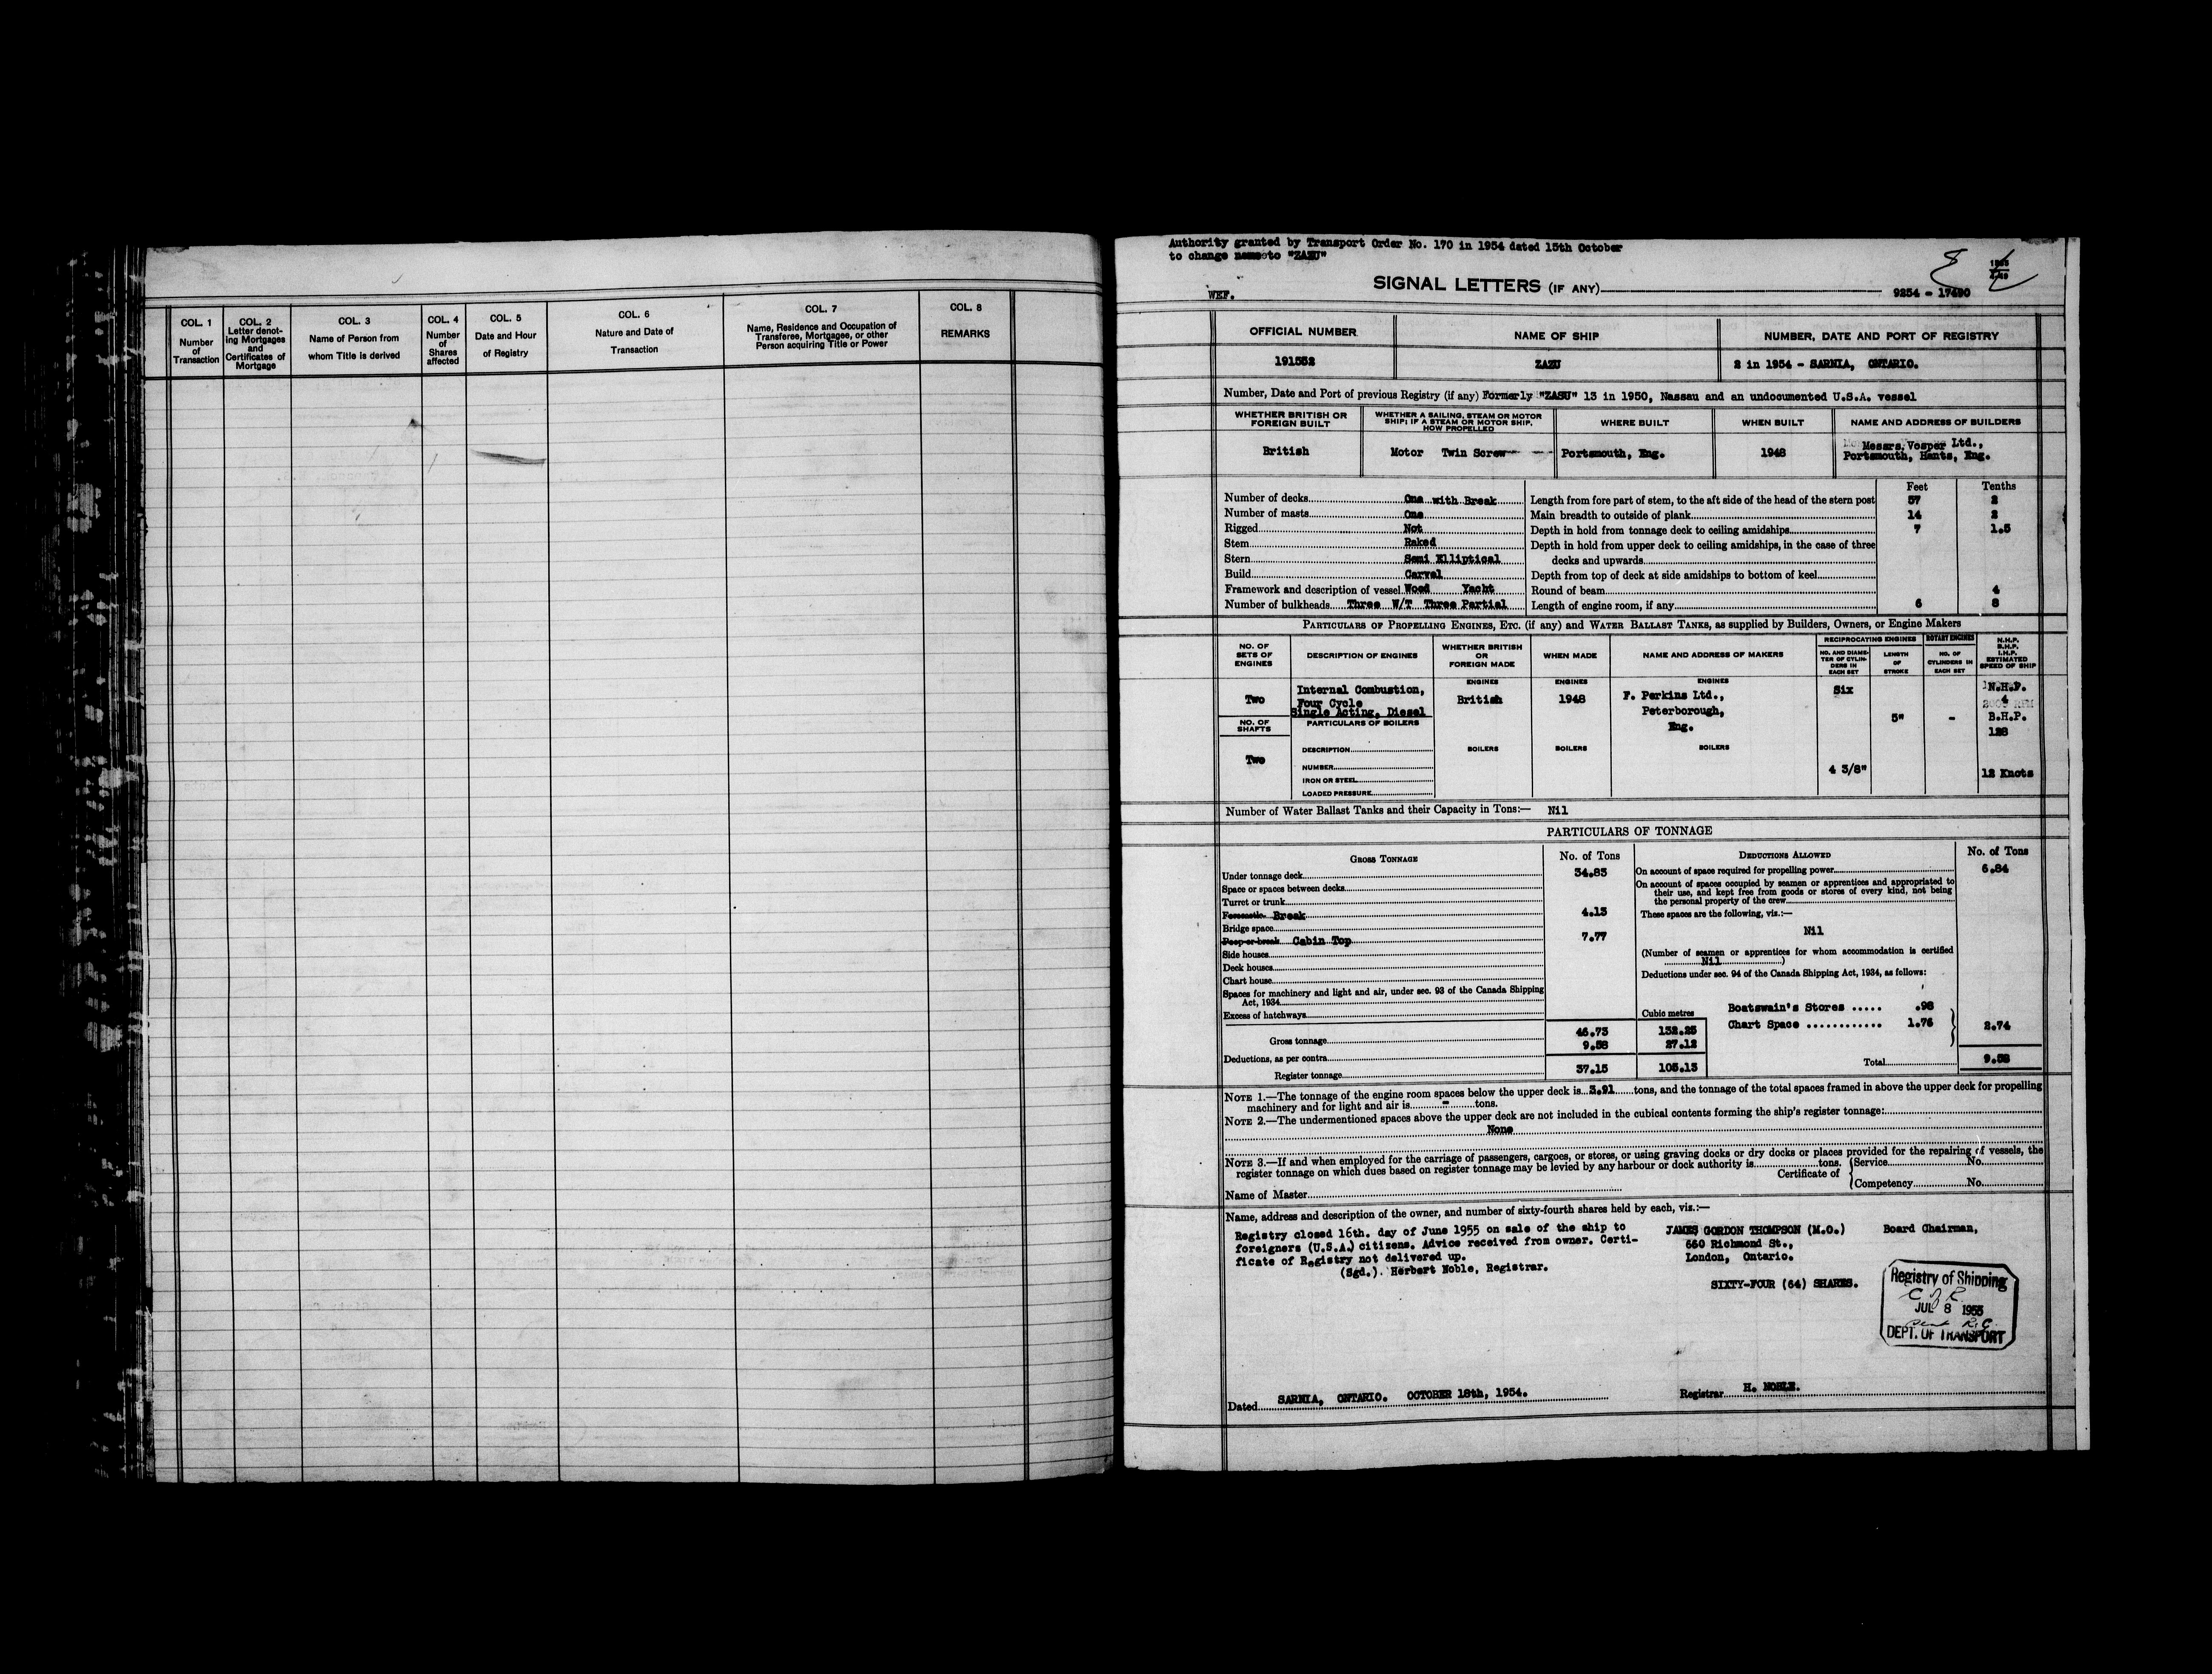 COL. 1
Number
of
Transaction
COL. 2
Letter denot-
ing Mortgages
and
Certificates of
Mortgage
COL. 3
Name of Person from
whom Title is derived
COL. 4
Number
of
Shares
affected
COL. 5
Date and Hour
of Registry
COL. 6
Nature and Date of
Transaction
COL. 7
Name, Residence and Occupation of
Transferee, Mortgagee, or other
Person acquiring Title or Power
COL. 8
REMARKS
Authority granted by Transport Order No. 170 in 1954 dated 15th October
to change name to "ZAZU"
SIGNAL LETTERS (IF ANY)
WEF.
9254 - 17490
OFFICIAL NUMBER
NAME OF SHIP
NUMBER, DATE AND PORT OF REGISTRY
191552
ZAZU
2 in 1954 - SARNIA, ONTARIO.
Number, Date and Port of previous Registry (if any) Formerly "ZASU" 13 in 1950, Nassau and an undocumented U.S.A. vessel
WHETHER BRITISH OR
FOREIGN BUILT
WHETHER A SAILING, STEAM OR MOTOR
SHIP; IF A STEAM OR MOTOR SHIP,
HOW PROPELLED
WHERE BUILT
WHEN BUILT
NAME AND ADDRESS OF BUILDERS
British
Motor Twin Screw
Portsmouth, Eng.
1948
Messrs, Vosper Ltd.,
Portsmouth, Hants, Eng.
Feet Tenths
Number of decks One with Break
Length from fore part of stem, to the aft side of the head of the stern post 57 2
Number of masts One
Main breadth to outside of plank 14 2
Rigged Not
Depth in hold from tonnage deck to ceiling amidships 7 1.5
Stem Raked
Depth in hold from upper deck to ceiling amidships, in the case of three
Stern Semi Elliptical
decks and upwards
Build Carvel
Depth from top of deck at side amidships to bottom of keel
Framework and description of vessel Wood Yacht
Round of beam 4
Number of bulkheads Three W/T Three Partial
Length of engine room, if any 6 8
PARTICULARS OF PROPELLING ENGINES, ETC. (if any) and WATER BALLAST TANKS, as supplied by Builders, Owners, or Engine Makers
NO. OF
SETS OF
ENGINES
DESCRIPTION OF ENGINES
WHETHER BRITISH
OR
FOREIGN MADE
WHEN MADE
NAME AND ADDRESS OF MAKERS
RECIPROCATING ENGINES
NO. AND DIAME-
TER OF CYLIN-
DERS IN
EACH SET
LENGTH
OF
STROKE
ROTARY ENGINES
NO. OF
CYLINDERS IN
EACH SET
N.H.P.
B.H.P.
I.H.P.
ESTIMATED
SPEED OF SHIP
ENGINES
ENGINES
ENGINES
Two
Internal Combustion,
Four Cycle
Single Acting, Diesel
British
1948
F. Perkins Ltd.,
Peterborough,
Eng.
Six
5"
-
N.H.P.
4
B.H.P.
128
NO. OF
SHAFTS
PARTICULARS OF BOILERS
Two
DESCRIPTION
NUMBER
IRON OR STEEL
LOADED PRESSURE
BOILERS
BOILERS
BOILERS
4 3/8"
12 Knots
Number of Water Ballast Tanks and their Capacity in Tons:— Nil
PARTICULARS OF TONNAGE
GROSS TONNAGE
No. of Tons
Under tonnage deck 34.83
Space or spaces between decks
Turret or trunk
Forecastle Break 4.13
Bridge space
Poop or break Cabin Top 7.77
Side houses
Deck houses
Chart house
Spaces for machinery and light and air, under sec. 93 of the Canada Shipping
Act, 1934
Excess of hatchways
Cubic metres
Gross tonnage 46.73 132.25
Deductions, as per contra 9.58 27.12
Register tonnage 37.15 105.13
DEDUCTIONS ALLOWED
No. of Tons
On account of space required for propelling power 6.84
On account of spaces occupied by seamen or apprentices and appropriated to
their use, and kept free from goods or stores of every kind, not being
the personal property of the crew
These spaces are the following, viz.:—
Nil
(Number of seamen or apprentices for whom accommodation is certified
Nil )
Deductions under sec. 94 of the Canada Shipping Act, 1934, as follows:
Boatswain's Stores ..... .98
Chart Space ............ 1.76
2.74
Total 9.58
NOTE 1.—The tonnage of the engine room spaces below the upper deck is 3.91 tons, and the tonnage of the total spaces framed in above the upper deck for propelling
machinery and for light and air is - tons.
NOTE 2.—The undermentioned spaces above the upper deck are not included in the cubical contents forming the ship's register tonnage:
None
NOTE 3.—If and when employed for the carriage of passengers, cargoes, or stores, or using graving docks or dry docks or places provided for the repairing of vessels, the
register tonnage on which dues based on register tonnage may be levied by any harbour or dock authority is tons.
Certificate of
Service No.
Competency No.
Name of Master
Name, address and description of the owner, and number of sixty-fourth shares held by each, viz.:—
Registry closed 16th. day of June 1955 on sale of the ship to
foreigners (U.S.A.) citizens. Advice received from owner. Certi-
ficate of Registry not delivered up.
(Sgd.). Herbert Noble, Registrar.
JAMES GORDON THOMPSON (M.O.) Board Chairman,
560 Richmond St.,
London, Ontario.
SIXTY-FOUR (64) SHARES.
Registry of Shipping
C of R
JUL 8 1955
DEPT. OF TRANSPORT
Dated SARNIA, ONTARIO. OCTOBER 18th, 1954.
Registrar H. NOBLE.